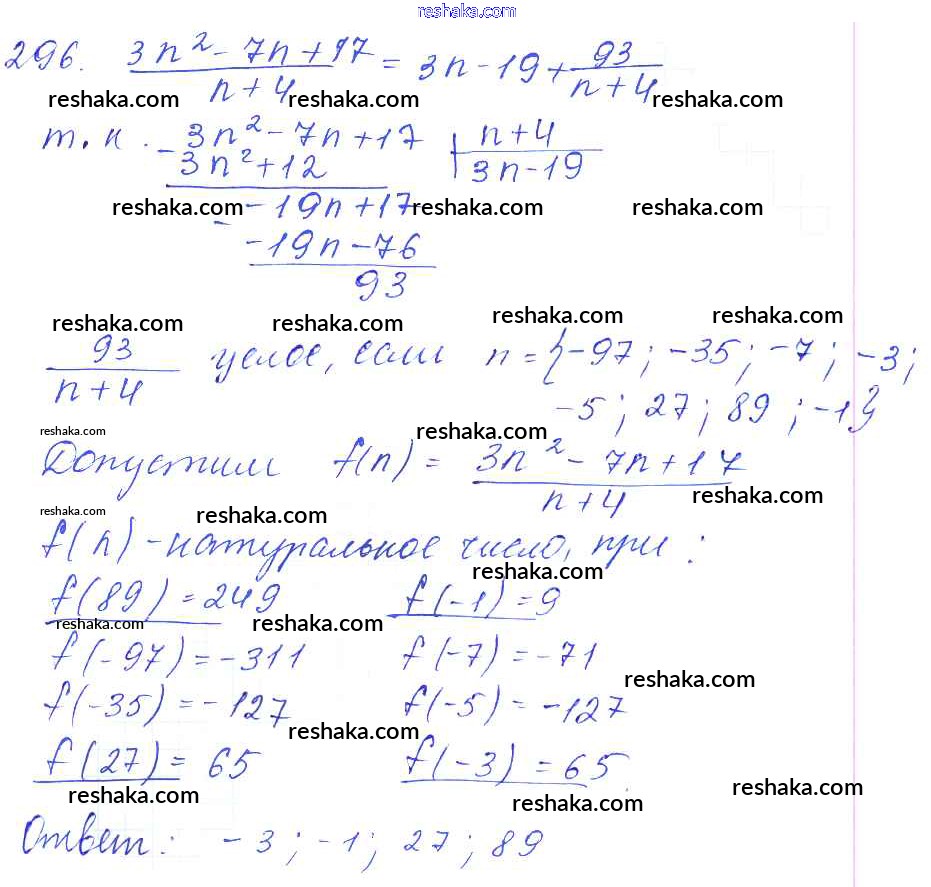 reshaka.com
296. (3n² - 7n + 17)/(n+4) = 3n - 19 + 93/(n+4)
reshaka.com reshaka.com reshaka.com
т.к. - 3n² - 7n + 17 | n+4
3n² + 12 | 3n - 19
reshaka.com reshaka.com reshaka.com
- -19n + 17
-19n - 76
93
reshaka.com reshaka.com reshaka.com reshaka.com
93/(n+4) целое, если n = {-97; -35; -7; -3;
-5; 27; 89; -1}
reshaka.com reshaka.com
Допустим f(n) = (3n² - 7n + 17)/(n+4)
reshaka.com reshaka.com reshaka.com
f(n) - натуральное число, при:
reshaka.com
f(89) = 249 f(-1) = 9
reshaka.com reshaka.com
f(-97) = -311 f(-7) = -71
reshaka.com
f(-35) = -127 f(-5) = -127
reshaka.com
f(27) = 65 f(-3) = 65
reshaka.com reshaka.com reshaka.com
Ответ: -3; -1; 27; 89